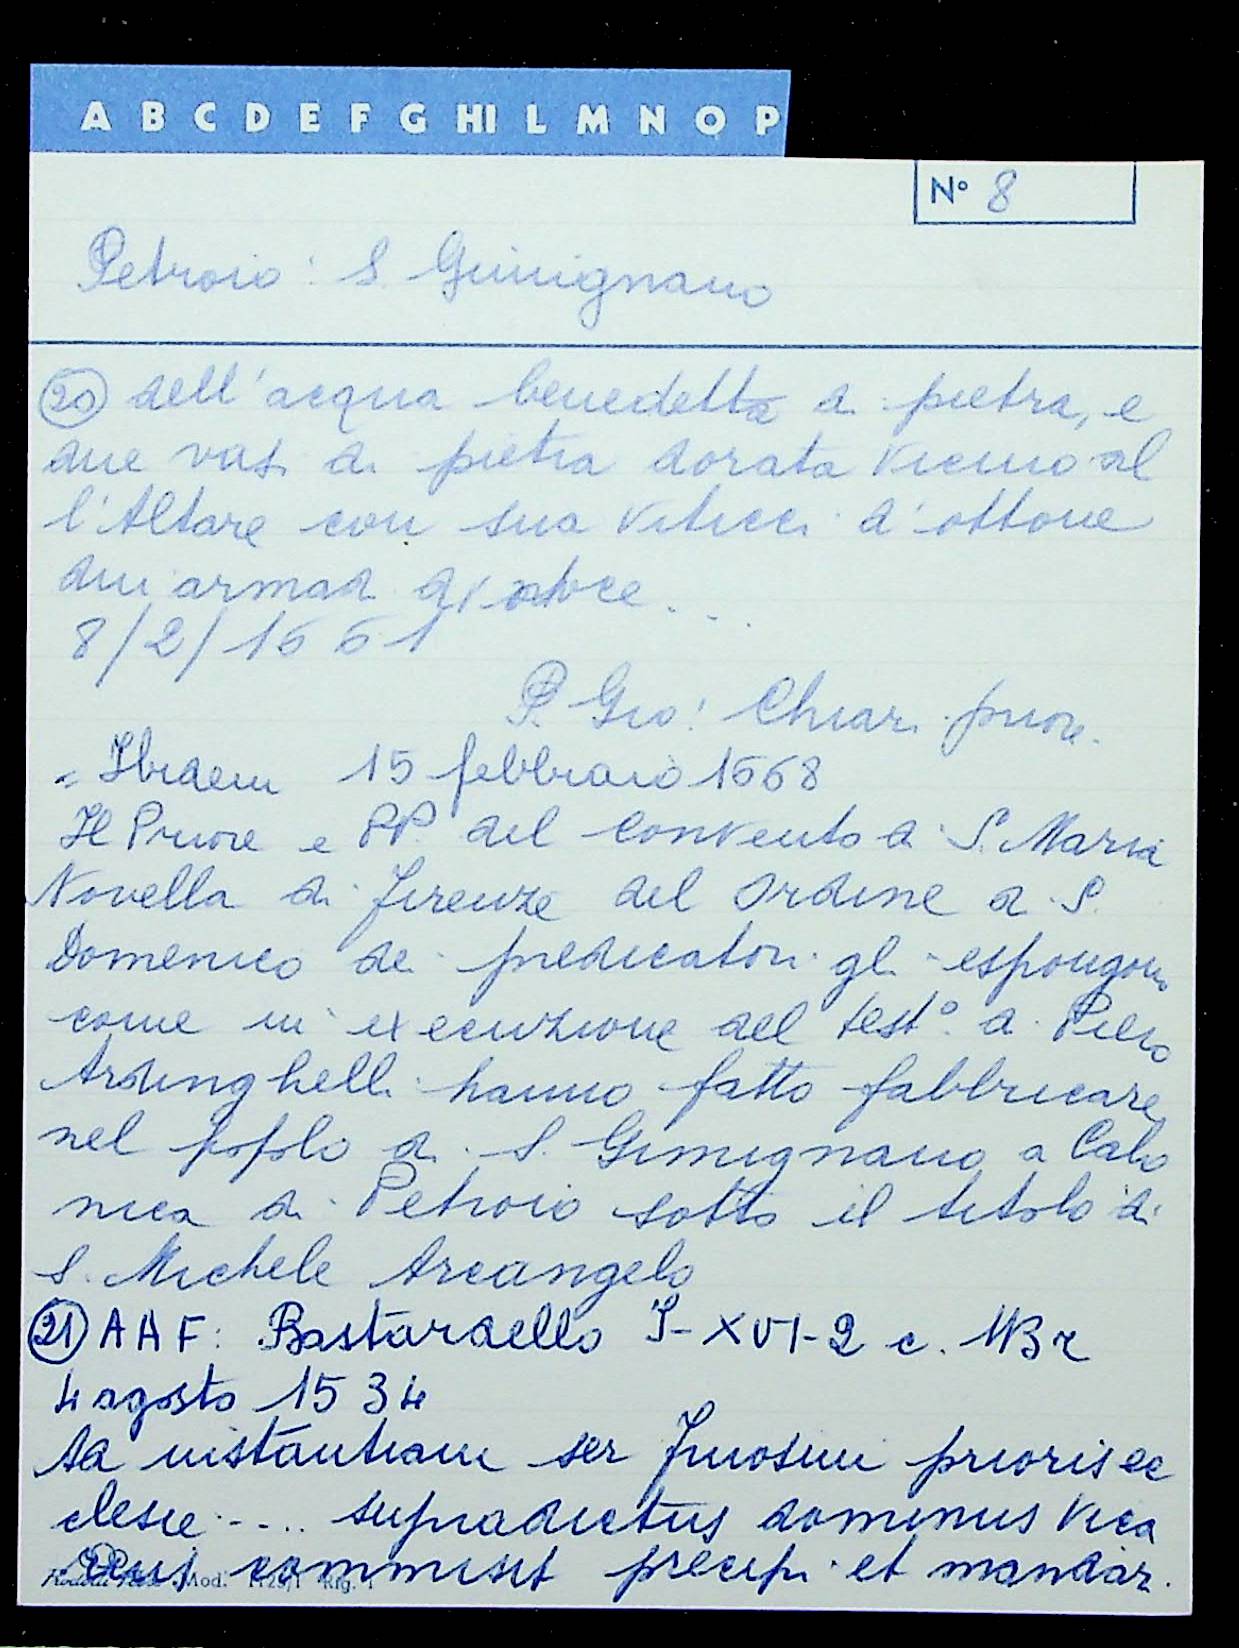 A B C D E F G HI L M N O P
N° 8
Petroio: S. Gimignano
(20) dell'acqua benedetta di pietra, e
due vasi di pietra dorata vicino al
l'Altare con sua viticci d'ottone
dui armadi di noce...
8/2/1661
P. Gio: Chiari priore.
= Ibidem 15 febbraio 1668
Il Priore e PP. del Convento di S. Maria
Novella di Firenze del Ordine di S.
Domenico de predicatori gli espongono
come in execuzione del test° di Piero
Ardinghelli hanno fatto fabbricare
nel popolo di S. Gimignano a Calo
nica di Petroio sotto il titolo di
S. Michele Arcangelo
(21) AAF: Bastardello I-XVI-2 c. 113r
4 agosto 1534
Ad instantiam ser prioris ec
clesie .... supradictus dominus vica
rius commisit precipi et mandar.
Mod.